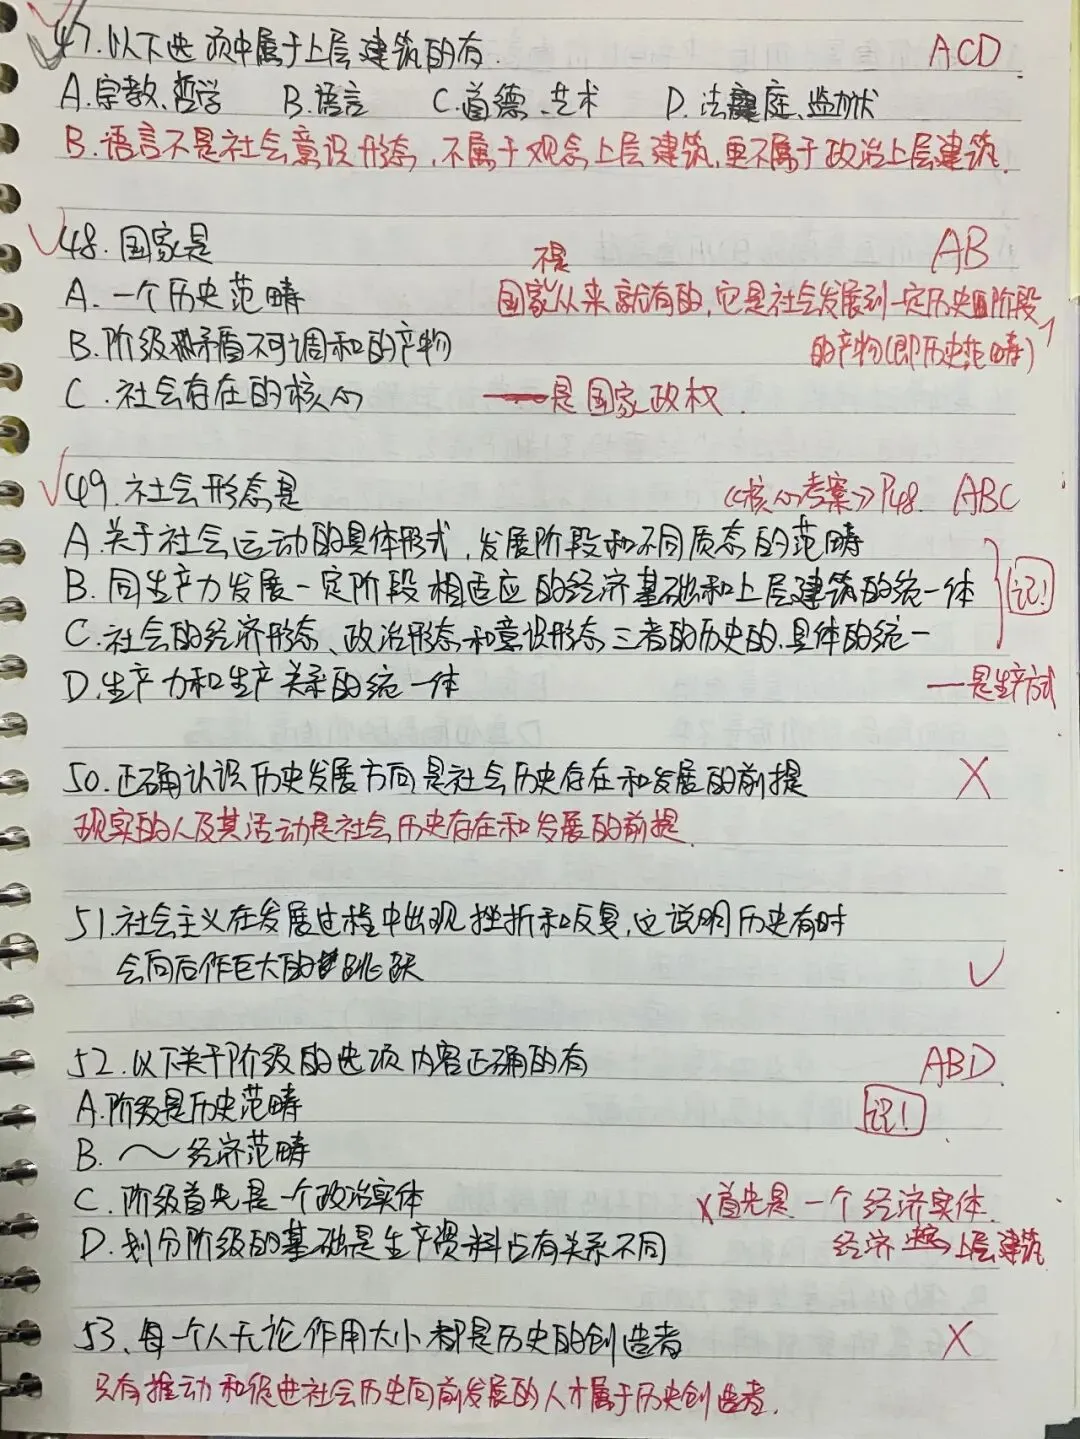 47.以下选项中属于上层建筑的有. ACD
A.宗教、哲学 B.语言 C.道德、艺术 D.法庭、监狱
B.语言不是社会意识形态,不属于观念上层建筑,更不属于政治上层建筑.
48.国家是 AB
不是
A.一个历史范畴 国家从来就有的,它是社会发展到一定历史阶段
B.阶级矛盾不可调和的产物 的产物(即历史范畴)
C.社会存在的核心 是国家政权.
49.社会形态是 《核心考案》P48. ABC
A.关于社会运动的具体形式,发展阶段和不同质态的范畴
B.同生产力发展一定阶段相适应的经济基础和上层建筑的统一体 记!
C.社会的经济形态、政治形态和意识形态三者的历史的.具体的统一
D.生产力和生产关系的统一体 —是生产方式
50.正确认识历史发展方向是社会历史存在和发展的前提 X
现实的人及其活动是社会历史存在和发展的前提.
51.社会主义在发展过程中出现挫折和反复,这说明历史有时
会向后作巨大的跳跃 √
52.以下关于阶级的选项内容正确的有 ABD.
A.阶级是历史范畴 记!
B.～经济范畴
C.阶级首先是一个政治实体 X首先是一个经济实体.
D.划分阶级的基础是生产资料占有关系不同 经济 上层建筑
53、每一个人无论作用大小都是历史的创造者 X
只有推动和促进社会历史向前发展的人才属于历史创造者.